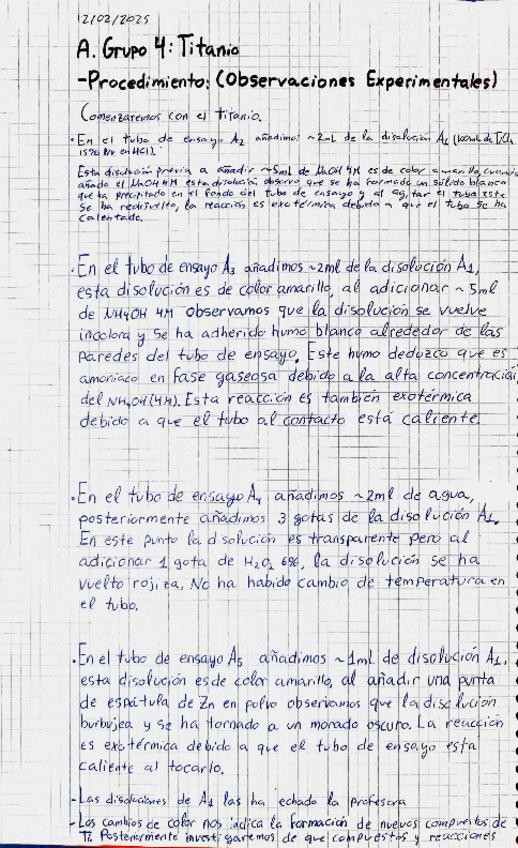 12/02/2025
A. Grupo 4: Titanio
-Procedimiento: (Observaciones Experimentales)
Comenzaremos con el titanio.
· En el tubo de ensayo A2 añadimos ~2mL de la disolución A1 (100mL de TiCl3
15% P/V en HCl).
Esta disolución previa a añadir ~5mL de NaOH 4M es de color amarillo, cuando
añado el NaOH 4M esta disolución observo que se ha formado un sólido blanco
que ha precipitado en el fondo del tubo de ensayo y al agitar el tubo este
se ha redisuelto, la reacción es exotérmica debido a que el tubo se ha
calentado.
· En el tubo de ensayo A3 añadimos ~2ml de la disolución A1,
esta disolución es de color amarillo, al adicionar ~5ml
de NH4OH 4M observamos que la disolución se vuelve
incolora y se ha adherido humo blanco alrededor de las
paredes del tubo de ensayo. Este humo deduzco que es
amoniaco en fase gaseosa debido a la alta concentración
del NH4OH (4M). Esta reacción es también exotérmica
debido a que el tubo al contacto está caliente.
· En el tubo de ensayo A4 añadimos ~2ml de agua,
posteriormente añadimos 3 gotas de la disolución A1.
En este punto la disolución es transparente pero al
adicionar 1 gota de H2O2 6%, la disolución se ha
vuelto rojiza. No ha habido cambio de temperatura en
el tubo.
· En el tubo de ensayo A5 añadimos ~1mL de disolución A1,
esta disolución es de color amarillo, al añadir una punta
de espátula de Zn en polvo observamos que la disolución
burbujea y se ha tornado a un morado oscuro. La reacción
es exotérmica debido a que el tubo de ensayo esta
caliente al tocarlo.
- Las disoluciones de A1 las ha echado la profesora
- Los cambios de color nos indica la formación de nuevos compuestos de
Ti. Posteriormente investigaremos de que compuestos y reacciones